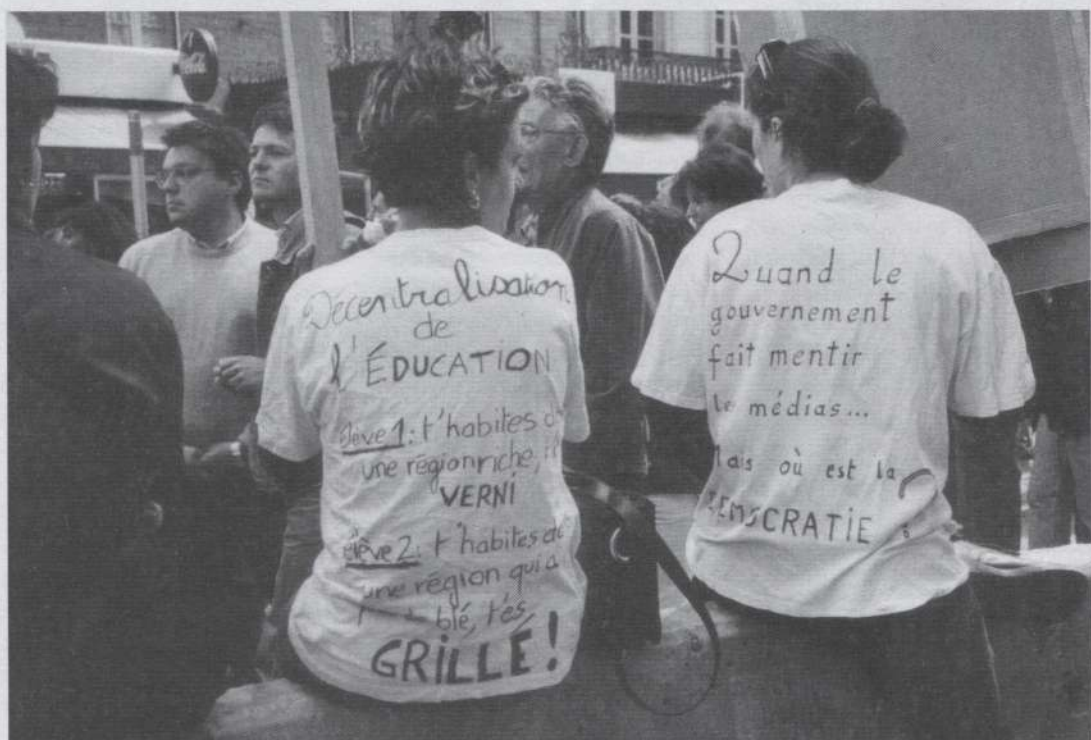 Coca-Cola
Décentralisation
de
l'ÉDUCATION
élève 1: t'habites
une région riche,
VERNI
élève 2: t'habites
une région qui a
blé, t'es
GRILLÉ!
Quand le
gouvernement
fait mentir
les médias...
Mais où est la
DEMOCRATIE?